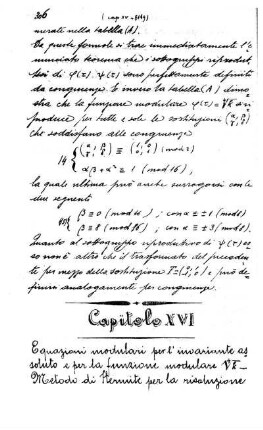 306 (cap XV - § 119)
nerale nella tabella (A).
Da queste formole si trae immediatamente l'e
nunciato teorema che i sottogruppi riprodut
tori di φ(τ), ψ(τ) sono perfettamente definiti
da congruenze. E invero la tabella (A) dimo
stra che la funzione modulare φ(τ) = ∜k si ri
produce per tutte e sole le sostituzioni (α β / γ δ)
che soddisfano alle congruenze
14 { (α β / γ δ) ≡ (1 0 / 0 1) (mod 2)
αβ + α² ≡ 1 (mod 16),
la quale ultima può anche surrogarsi con le
due seguenti
β ≡ 0 (mod 16) ; con α ≡ ± 1 (mod 8)
β ≡ 8 (mod 16) ; con α ≡ ± 3 (mod 8).
Quanto al sottogruppo riproduttivo di ψ(τ) es
so non è altro che il trasformato del preceden
te per mezzo della sostituzione e può de
finirsi analogamente per congruenze.
Capitolo XVI
Equazioni modulari per l'invariante as
soluto e per la funzione modulare
Metodo di Hermite per la risoluzione